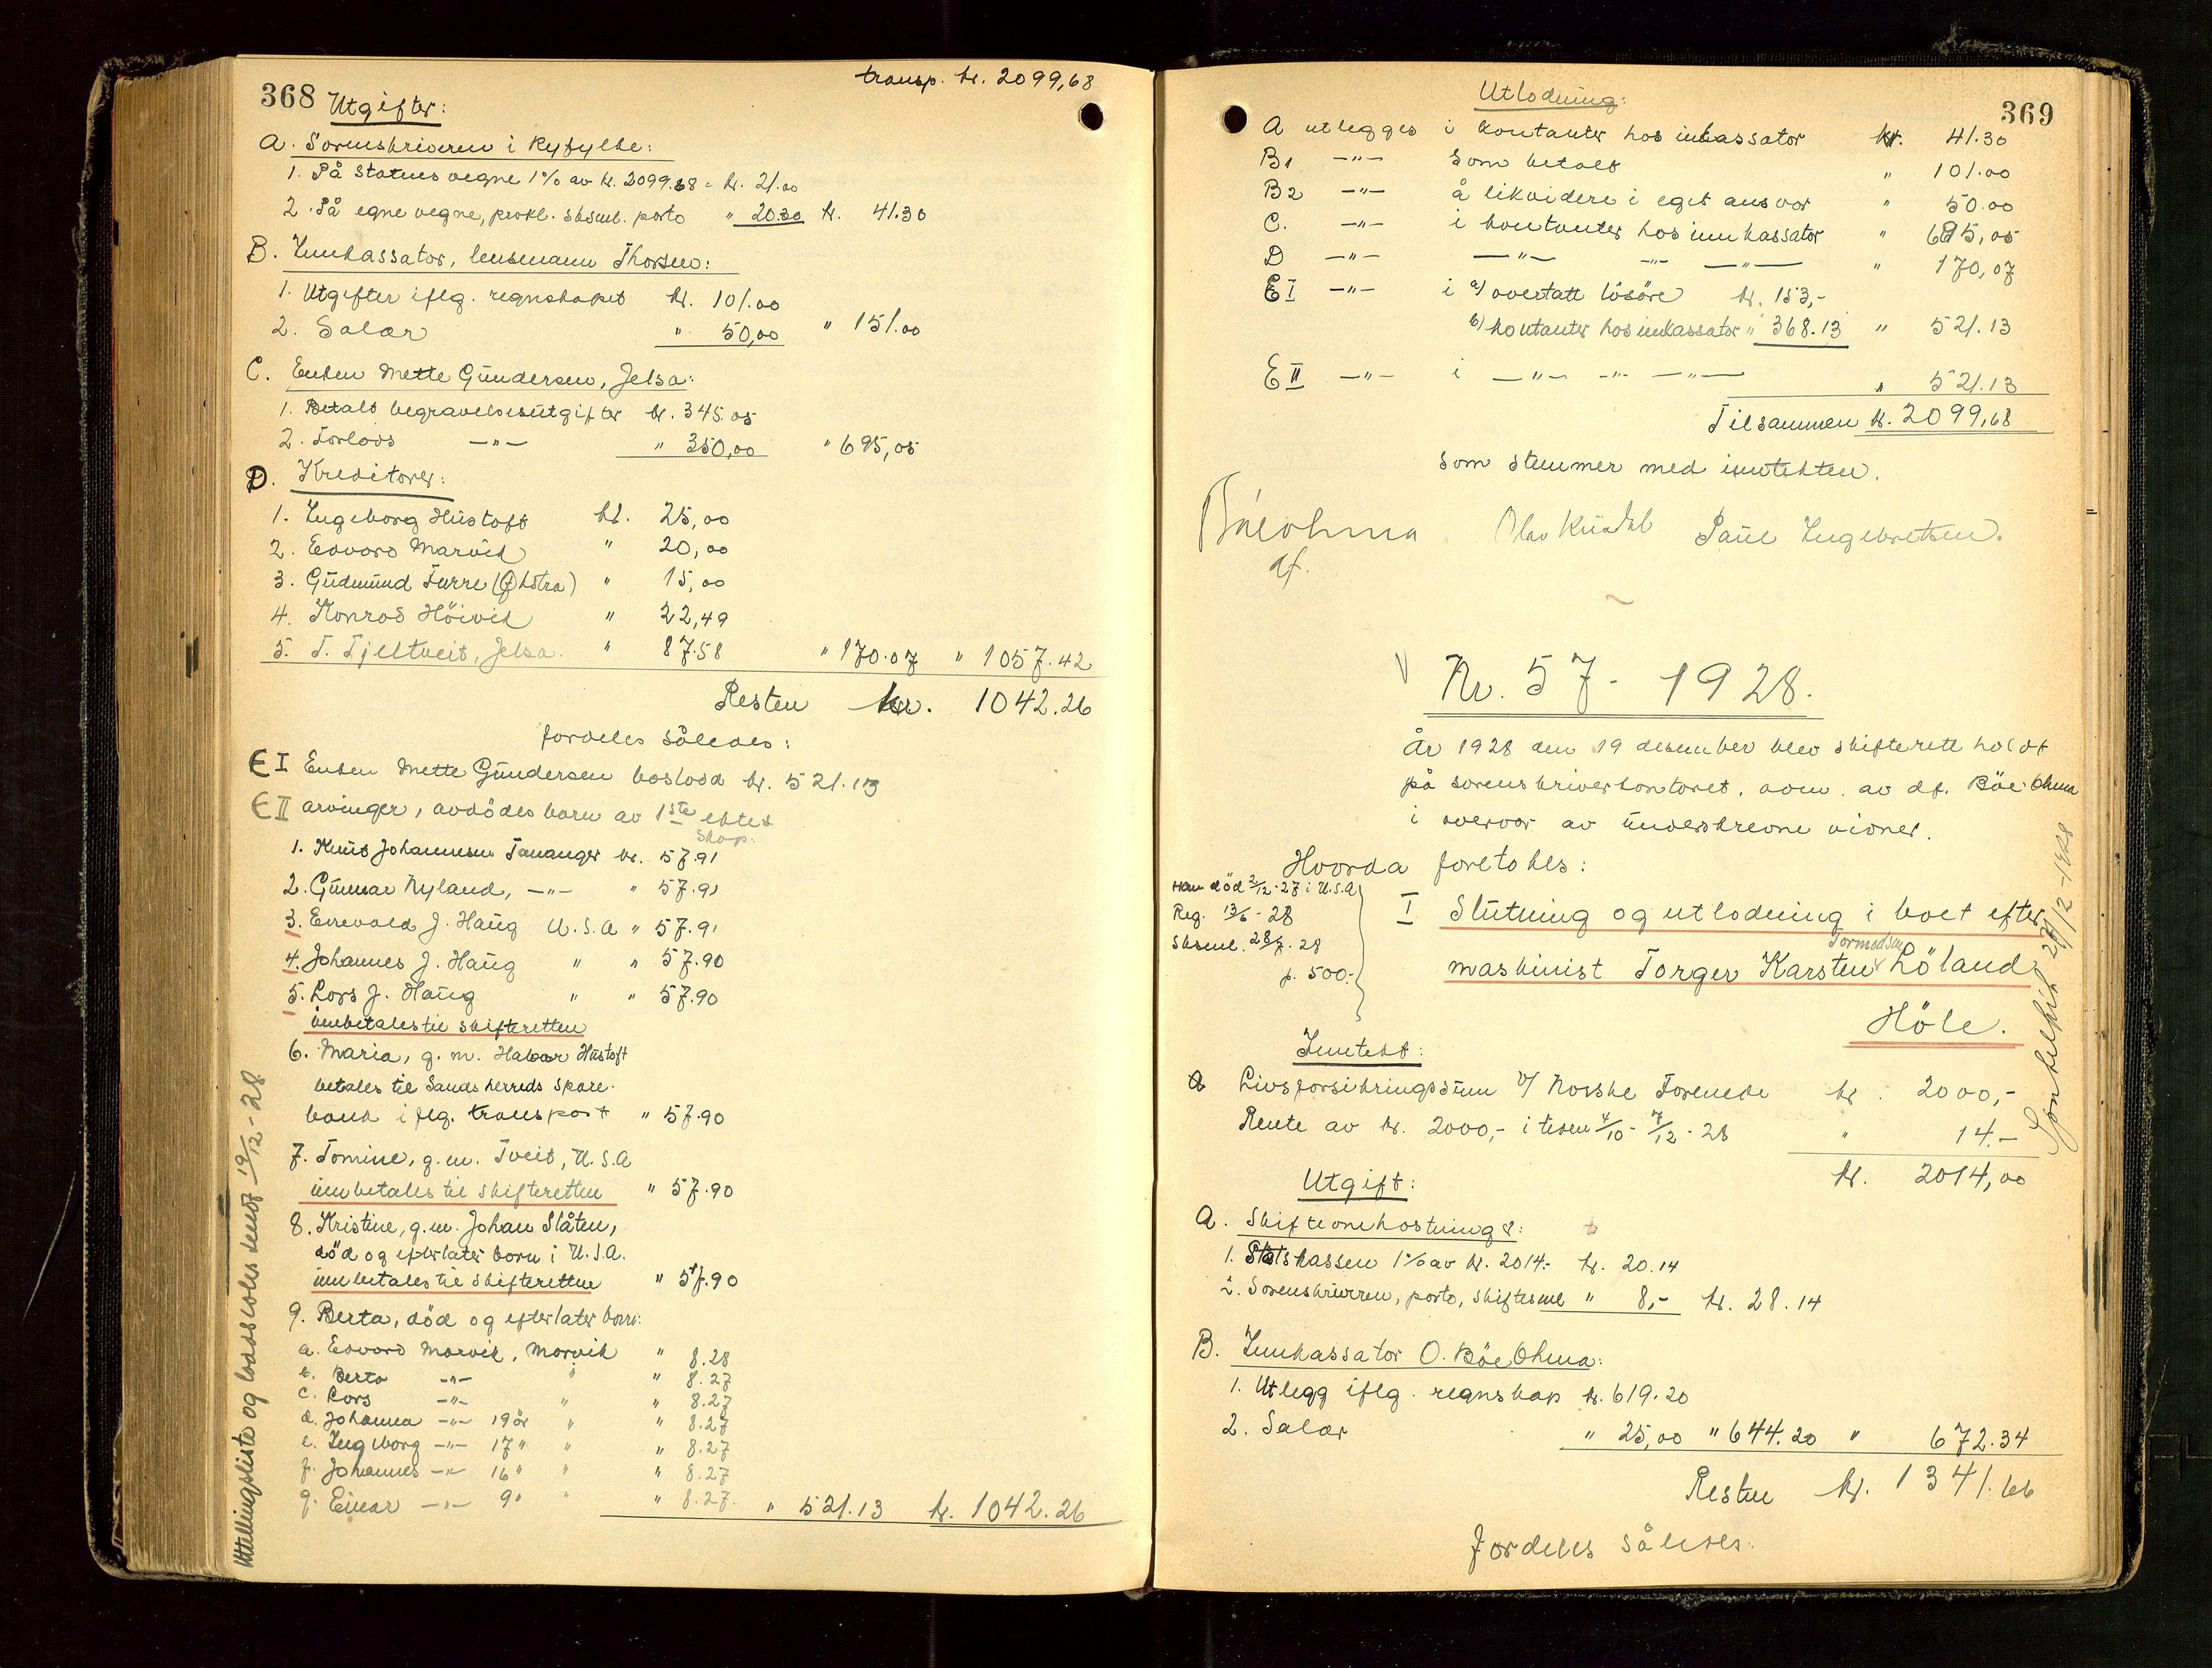 368
transp. kr. 2099,68
Utgifter:
A. Sorenskriveren i Ryfylke:
1. På statens vegne 1% av kr. 2099.68 = kr. 21.00
2. På egne vegne, prokl. sksml. porto " 20.30 kr. 41.30
B. Innkassator, lensmann Thorsen:
1. Utgifter iflg. regnskapet kr. 101.00
2. Salær " 50,00 " 151.00
C. Enken Mette Gundersen, Jelsa:
1. Betalt begravelsesutgifter kr. 345.05
2. Forlods —"— " 350,00 " 695,05
D. Kreditorer:
1. Ingeborg Hustoft kr. 25,00
2. Edvard Marvik " 20,00
3. Gudmund Furre (Økstra) " 15,00
4. Konrad Höivik " 22,49
5. T. Tjeltveit, Jelsa. " 87.58 " 170.07 " 1057.42
Resten kr. 1042.26
fordeles således:
E I Enken Mette Gundersen boslodd kr. 521.13
E II arvinger, avdödes barn av 1ste ekteskap:
1. Knut Johannesen Tananger kr. 57.91
2. Gunnar Nyland, —"— " 57.91
3. Enevald J. Haug U.S.A " 57.91
4. Johannes J. Haug " " 57.90
5. Lars J. Haug " " 57.90
innbetales til skifteretten
6. Maria, g. m. Haldor Hustoft
betales til Sands herreds spare-
bank iflg. transport " 57.90
7. Tomine, g.m. Tveit, U.S.A
innbetales til skifteretten " 57.90
8. Kristine, g.m. Johan Slåten,
död og efterlater barn i U.S.A.
innbetales til skifteretten " 57.90
9. Berta, död og efterlater barn:
a. Edvard Marvik, Marvik " 8.28
b. Berta —"— " " 8.27
c. Lars —"— " " 8.27
d. Johanna —"— 19 år " " 8.27
e. Ingeborg —"— 17 " " " 8.27
f. Johannes —"— 16 " " " 8.27
g. Einar —"— 9 " " " 8.27. " 521.13 kr. 1042.26
Utlodning:
369
A utlegges i kontanter hos inkassator kr. 41.30
B1 —"— som betalt " 101.00
B2 —"— å likvidere i eget ansvar " 50.00
C. —"— i kontanter hos innkassator " 695,05
D —"— —"— —"— —"— " 170,07
E I —"— i a) overtatt lösöre kr. 153,-
b) kontanter hos innkassator " 368.13 " 521.13
E II —"— i —"— —"— —"— " 521.13
Tilsammen kr. 2099,68
som stemmer med inntekten.
Böe Ohma Olav Paul Ingebretsen.
df.
Nr. 57 - 1928.
År 1928 den 19 desember blev skifterett holdt
på sorenskriverkontoret, adm. av df. Böe Ohma
i overvær av underskrevne vidner.
Hvorda foretokes:
Han död 2/12-27 i U.S.A
Reg. 13/6-28
Sksml. 28/7.28
p. 500:
I Slutning og utlodning i boet efter
maskinist Torger Karsten Tormodsen Löland
Höle.
Inntekt:
Livsforsikringssum v/ Norske Forenede kr. 2000,-
Rente av kr. 2000,- i tiden 4/10 - 7/12 - 28 " 14.-
kr. 2014,00
Utgift:
A. Skifteomkostninger:
1. Statskassen 1% av kr. 2014.- kr. 20.14
2. Sorenskriveren, porto, skiftesml " 8,- kr. 28.14
B. Innkassator O. Böe Ohma:
1. Utlegg iflg. regnskap kr. 619.20
2. Salær " 25,00 " 644.20 " 672.34
Resten kr. 1341.66
Fordeles således:
Utstillingsliste og loddsedler sendt 19/12 - 28
27/12-1928